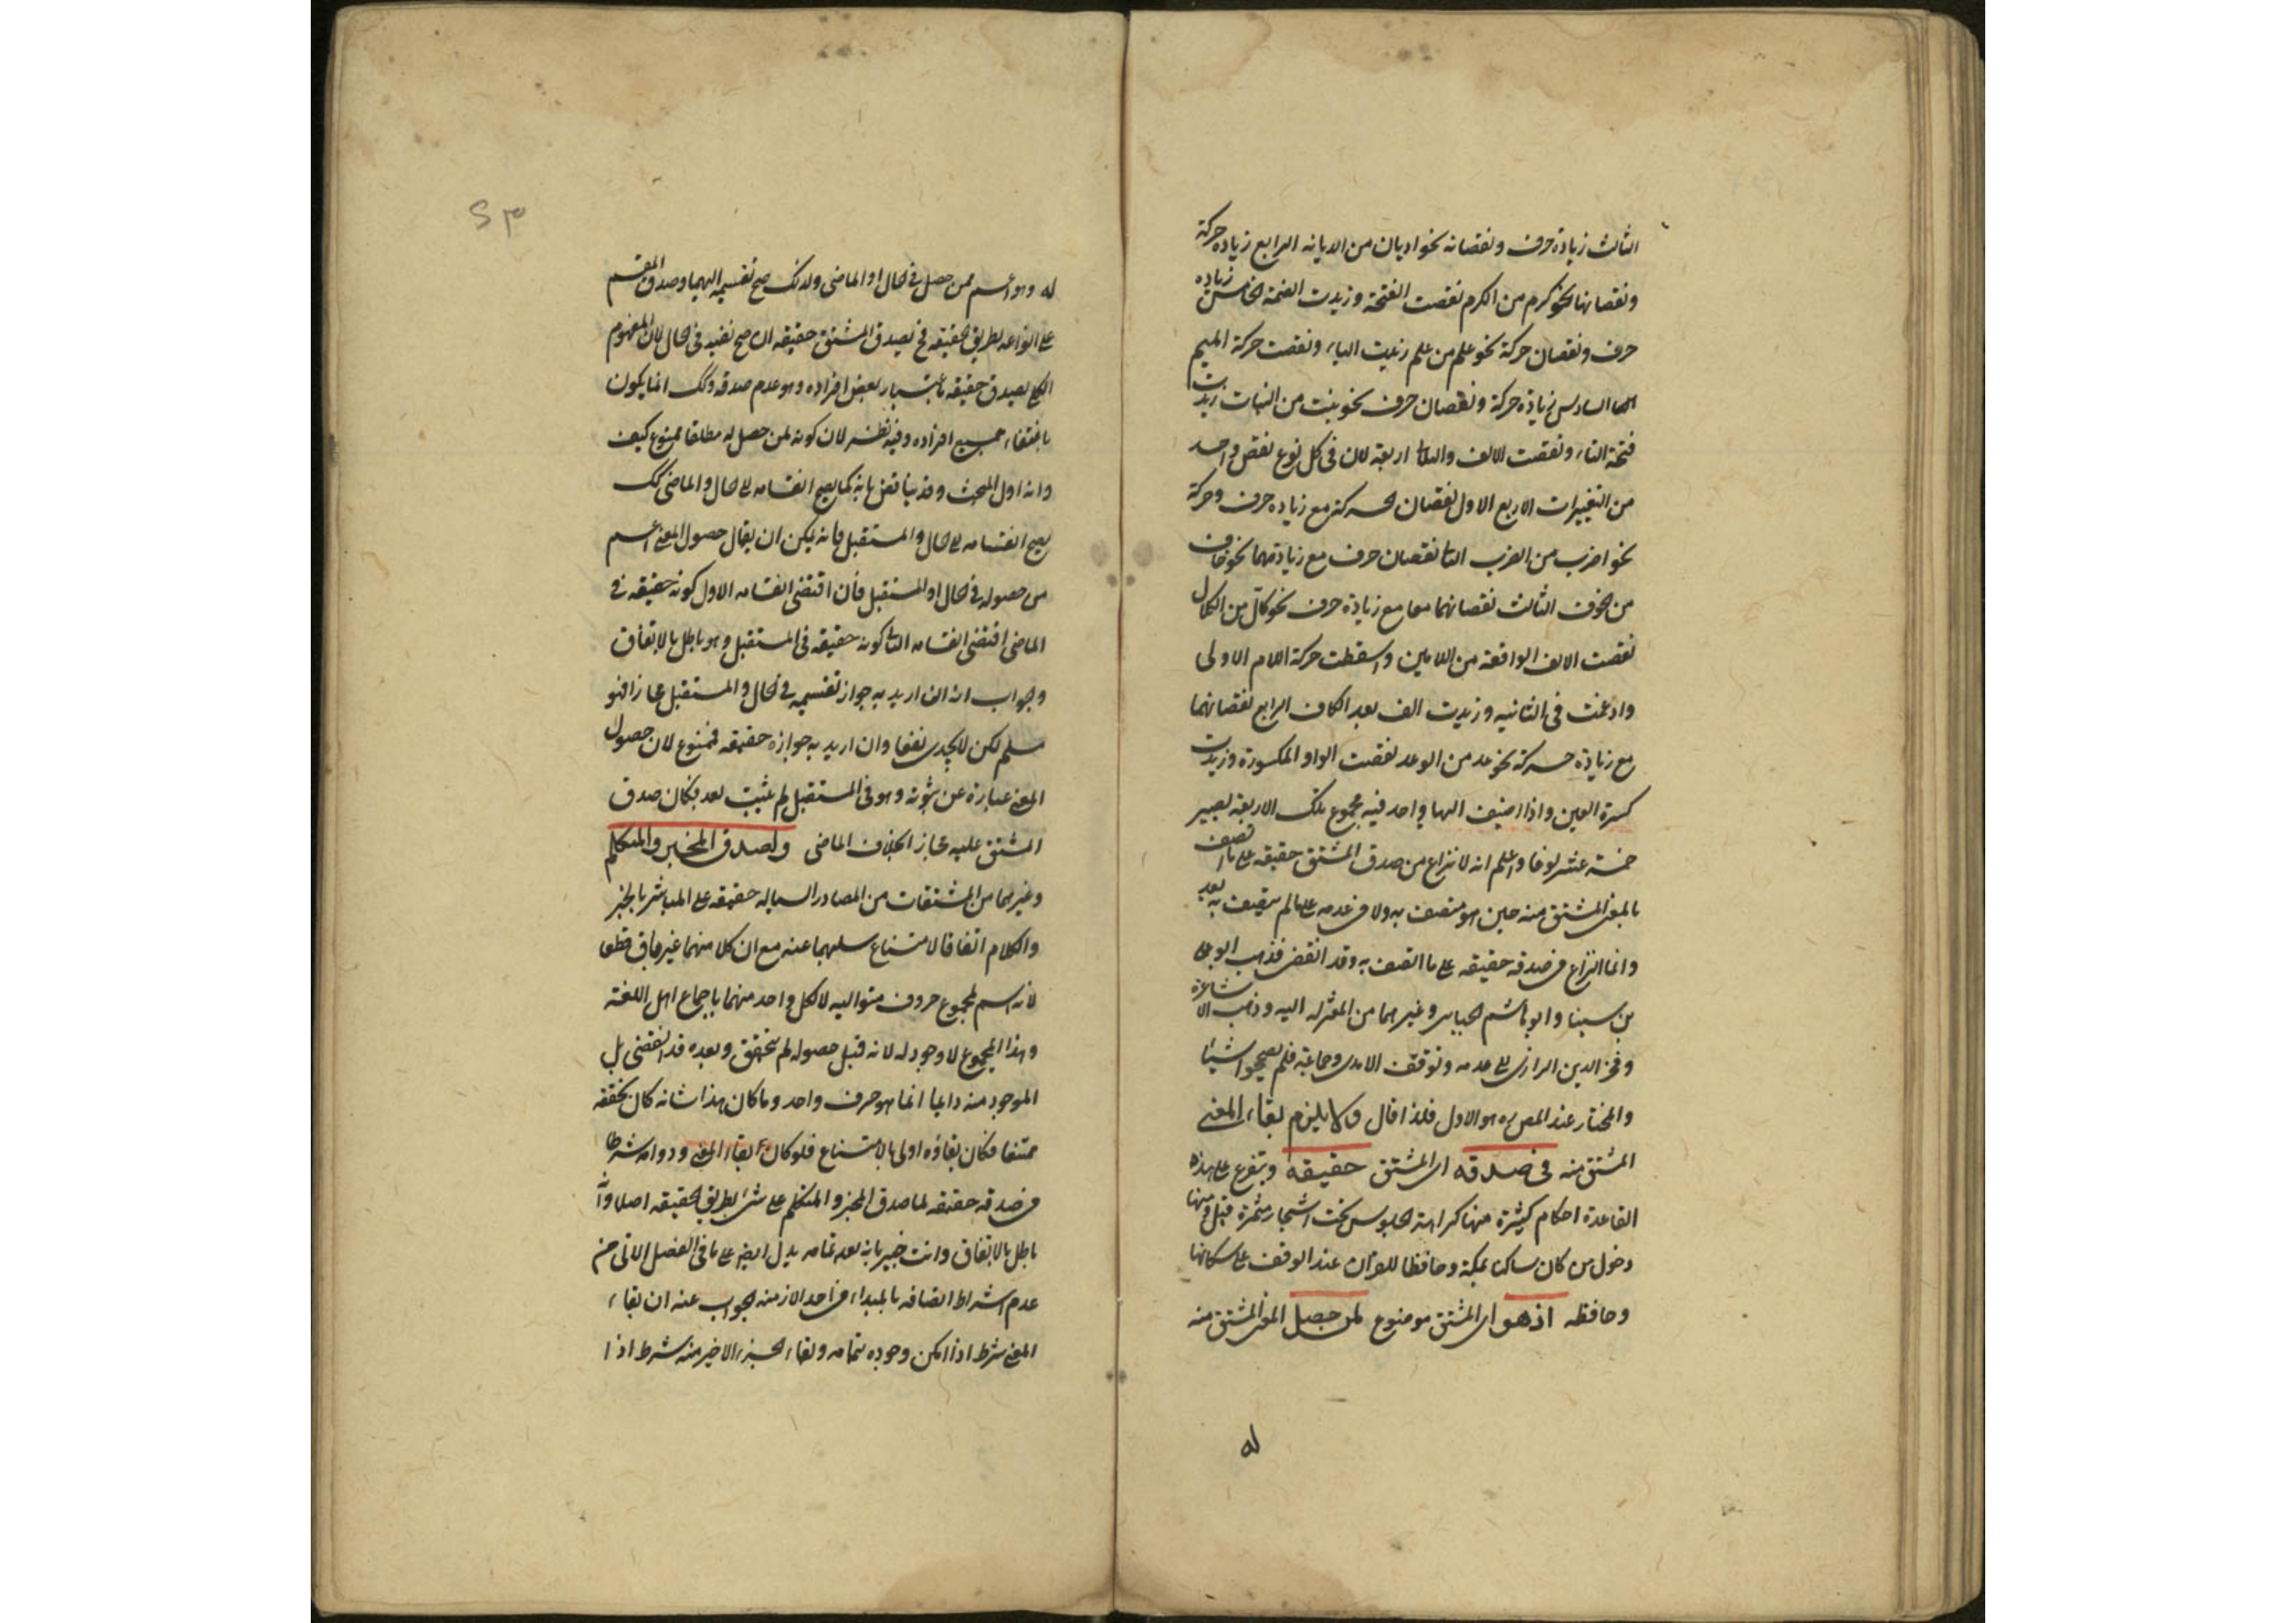 الثالث زيادة حرف ونقصانه نحو اديان من الديانه الرابع زيادة حركة
ونقصانها نحو كرم من الكرم نقصت الفتحة وزيدت الضمة الخامس زياده
حرف ونقصان حركة نحو علم من علم زيدت الياء ونقصت حركة الميم
السادس زيادة حركة ونقصان حرف نحو بنت من النبات زيدت
فتحة التاء ونقصت الالف والثنا اربعة لان فى كل نوع نقص واحد
من التغييرات الاربع الاول نقصان الحركة مع زياده حرف وحركة
نحو اضرب من الضرب الثا نقصان حرف مع زيادتهما نحو خاف
من الخوف الثالث نقصانهما معا مع زيادة حرف نحو كال من الكلال
نقصت الالف الواقعة من اللامين واسقطت حركة اللام الاولى
وادغمت فى الثانيه وزيدت الف بعد الكاف الرابع نقصانهما
مع زيادة حركة نحو عد من الوعد نقصت الواو المكسورة وزيدت
كسرة العين واذا اضيف اليها واحد فيه مجموع تلك الاربعة يصير
خمسة عشر نوعا واعلم انه لا نزاع من صدق المشتق حقيقه على ما اتصف
بالمعنى المشتق منه حين هو متصف به ولا فى عدمه على ما لم يتصف به بعد
وانما النزاع فى صدقه حقيقه على ما اتصف به وقد انقضى فذهب ابو على
بن سينا وابو هاشم الجبايى وغيرهما من المعتزله اليه وذهب الاشاعرة
وفخر الدين الرازى الى عدمه وتوقف الامدى وجماعة فلم يصححوا شيئا
والمختار عند المص ره هو الاول فلذا قال ولا يلزم بقاء المعنى
المشتق منه فى صدقه اى المشتق حقيقه ويتفرع على هذه
القاعدة احكام كثيرة منها كراهة الجلوس تحت اشجار مثمرة قبل ومنها
دخول من كان ساكنا بمكة وحافظا للقران عند الوقف على سكانها
وحافظه اذ هو اى المشتق موضوع لمن حصل المعنى المشتق منه
له
٢٣
له وهو اعم ممن حصل فى الحال او الماضى ولذلك صح تقسيمه اليهما وصدق المقسم
على انواعه بطريق الحقيقه فح يصدق المشتق حقيقه ان صح نفيه فى الحال لان المفهوم
الكلى يصدق حقيقه باعتبار بعض افراده وهو عدم صدقه وكك انما يكون
بانتفاء جميع افراده وفيه نظر لان كونه لمن حصل له مطلقا ممنوع كيف
وانه اول البحث وقد يناقض بانه كما يصح انقسامه الى الحال والماضى كك
يصح انقسامه الى الحال والمستقبل فانه يمكن ان يقال حصول المعنى اعم
من حصوله فى الحال او المستقبل فان اقتضى انقسامه الاول كونه حقيقه فى
الماضى اقتضى انقسامه الثا كونه حقيقه فى المستقبل وهو باطل بالاتفاق
وجواب انه ان اريد به جواز تقسيمه فى الحال والمستقبل مجازا فهو
مسلم لكن لا يجدى نفعا وان اريد به جوازه حقيقه فممنوع لان حصول
المعنى عبارة عن ثبوته وهو فى المستقبل لم يثبت بعد فكان صدق
المشتق عليه مجاز الخلاف الماضى ولصدق المخبر والمتكلم
وغيرهما من المشتقات من المصادر السياله حقيقه على المباشر بالخبر
والكلام اتفاقا لامتناع سلبهما عنه مع ان كلا منهما غير باق قطعا
لانه اسم لمجموع حروف متواليه لا لكل واحد منهما باجماع اهل اللغة
وهذا المجموع لا وجود له لانه قبل حصوله لم يتحقق وبعده قد انقضى بل
الموجود منه دايما انما هو حرف واحد وما كان هذا شانه كان تحققه
ممتنعا فكان بقاؤه اولى بالامتناع فلو كان بقاء المعنى ودوامه شرطا
فى صدقه حقيقه لما صدق المخبر والمتكلم على شئ بطريق الحقيقه اصلا وانه
باطل بالاتفاق وانت خبير بانه بعد تمامه يدل ايضا على ما فى الفصل الاتى من
عدم اشتراط اتصافه بالمبداء فى احد الازمنه الجواب عنه ان بقاء
المعنى شرط اذا امكن وجوده بتمامه وبقاء الجزء الاخير منه شرط اذا